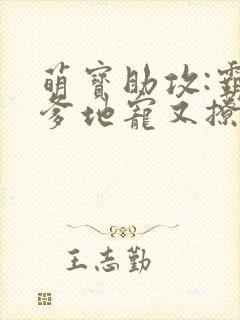 萌寶助攻:霸
爹地寵又撩
王志勤